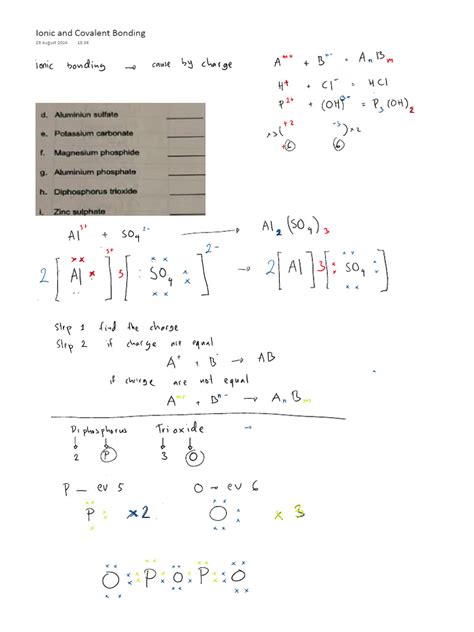 Ionic and Covalent Bonding
29 August 2024 15:38
ionic bonding → cause by charge
Aᵐ⁺ + Bⁿ⁻ = AₙBₘ
H⁺ + Cl⁻ = HCl
P²⁺ + (OH)³⁻ = P₃(OH)₂
x3(⁺² ⁻³)x2
+6 6
d. Aluminiun sulfate
e. Potassium carbonate
f. Magnesium phosphide
g. Aluminium phosphate
h. Diphosphorus trioxide
i. Zinc sulphate
Al³⁺ + SO₄²⁻ → Al₂(SO₄)₃
2[Al]³⁺ 3[SO₄]²⁻ → 2[Al] 3[SO₄]
Step 1 find the charge
Step 2 if charge are equal
A⁺ + B⁻ → AB
if charge are not equal
Aᵐ⁺ + Bⁿ⁻ → AₙBₘ
Diphosphorus Trioxide →
2 P 3 O
P — ev 5 O → ev 6
P x2 O x 3
O P O P O